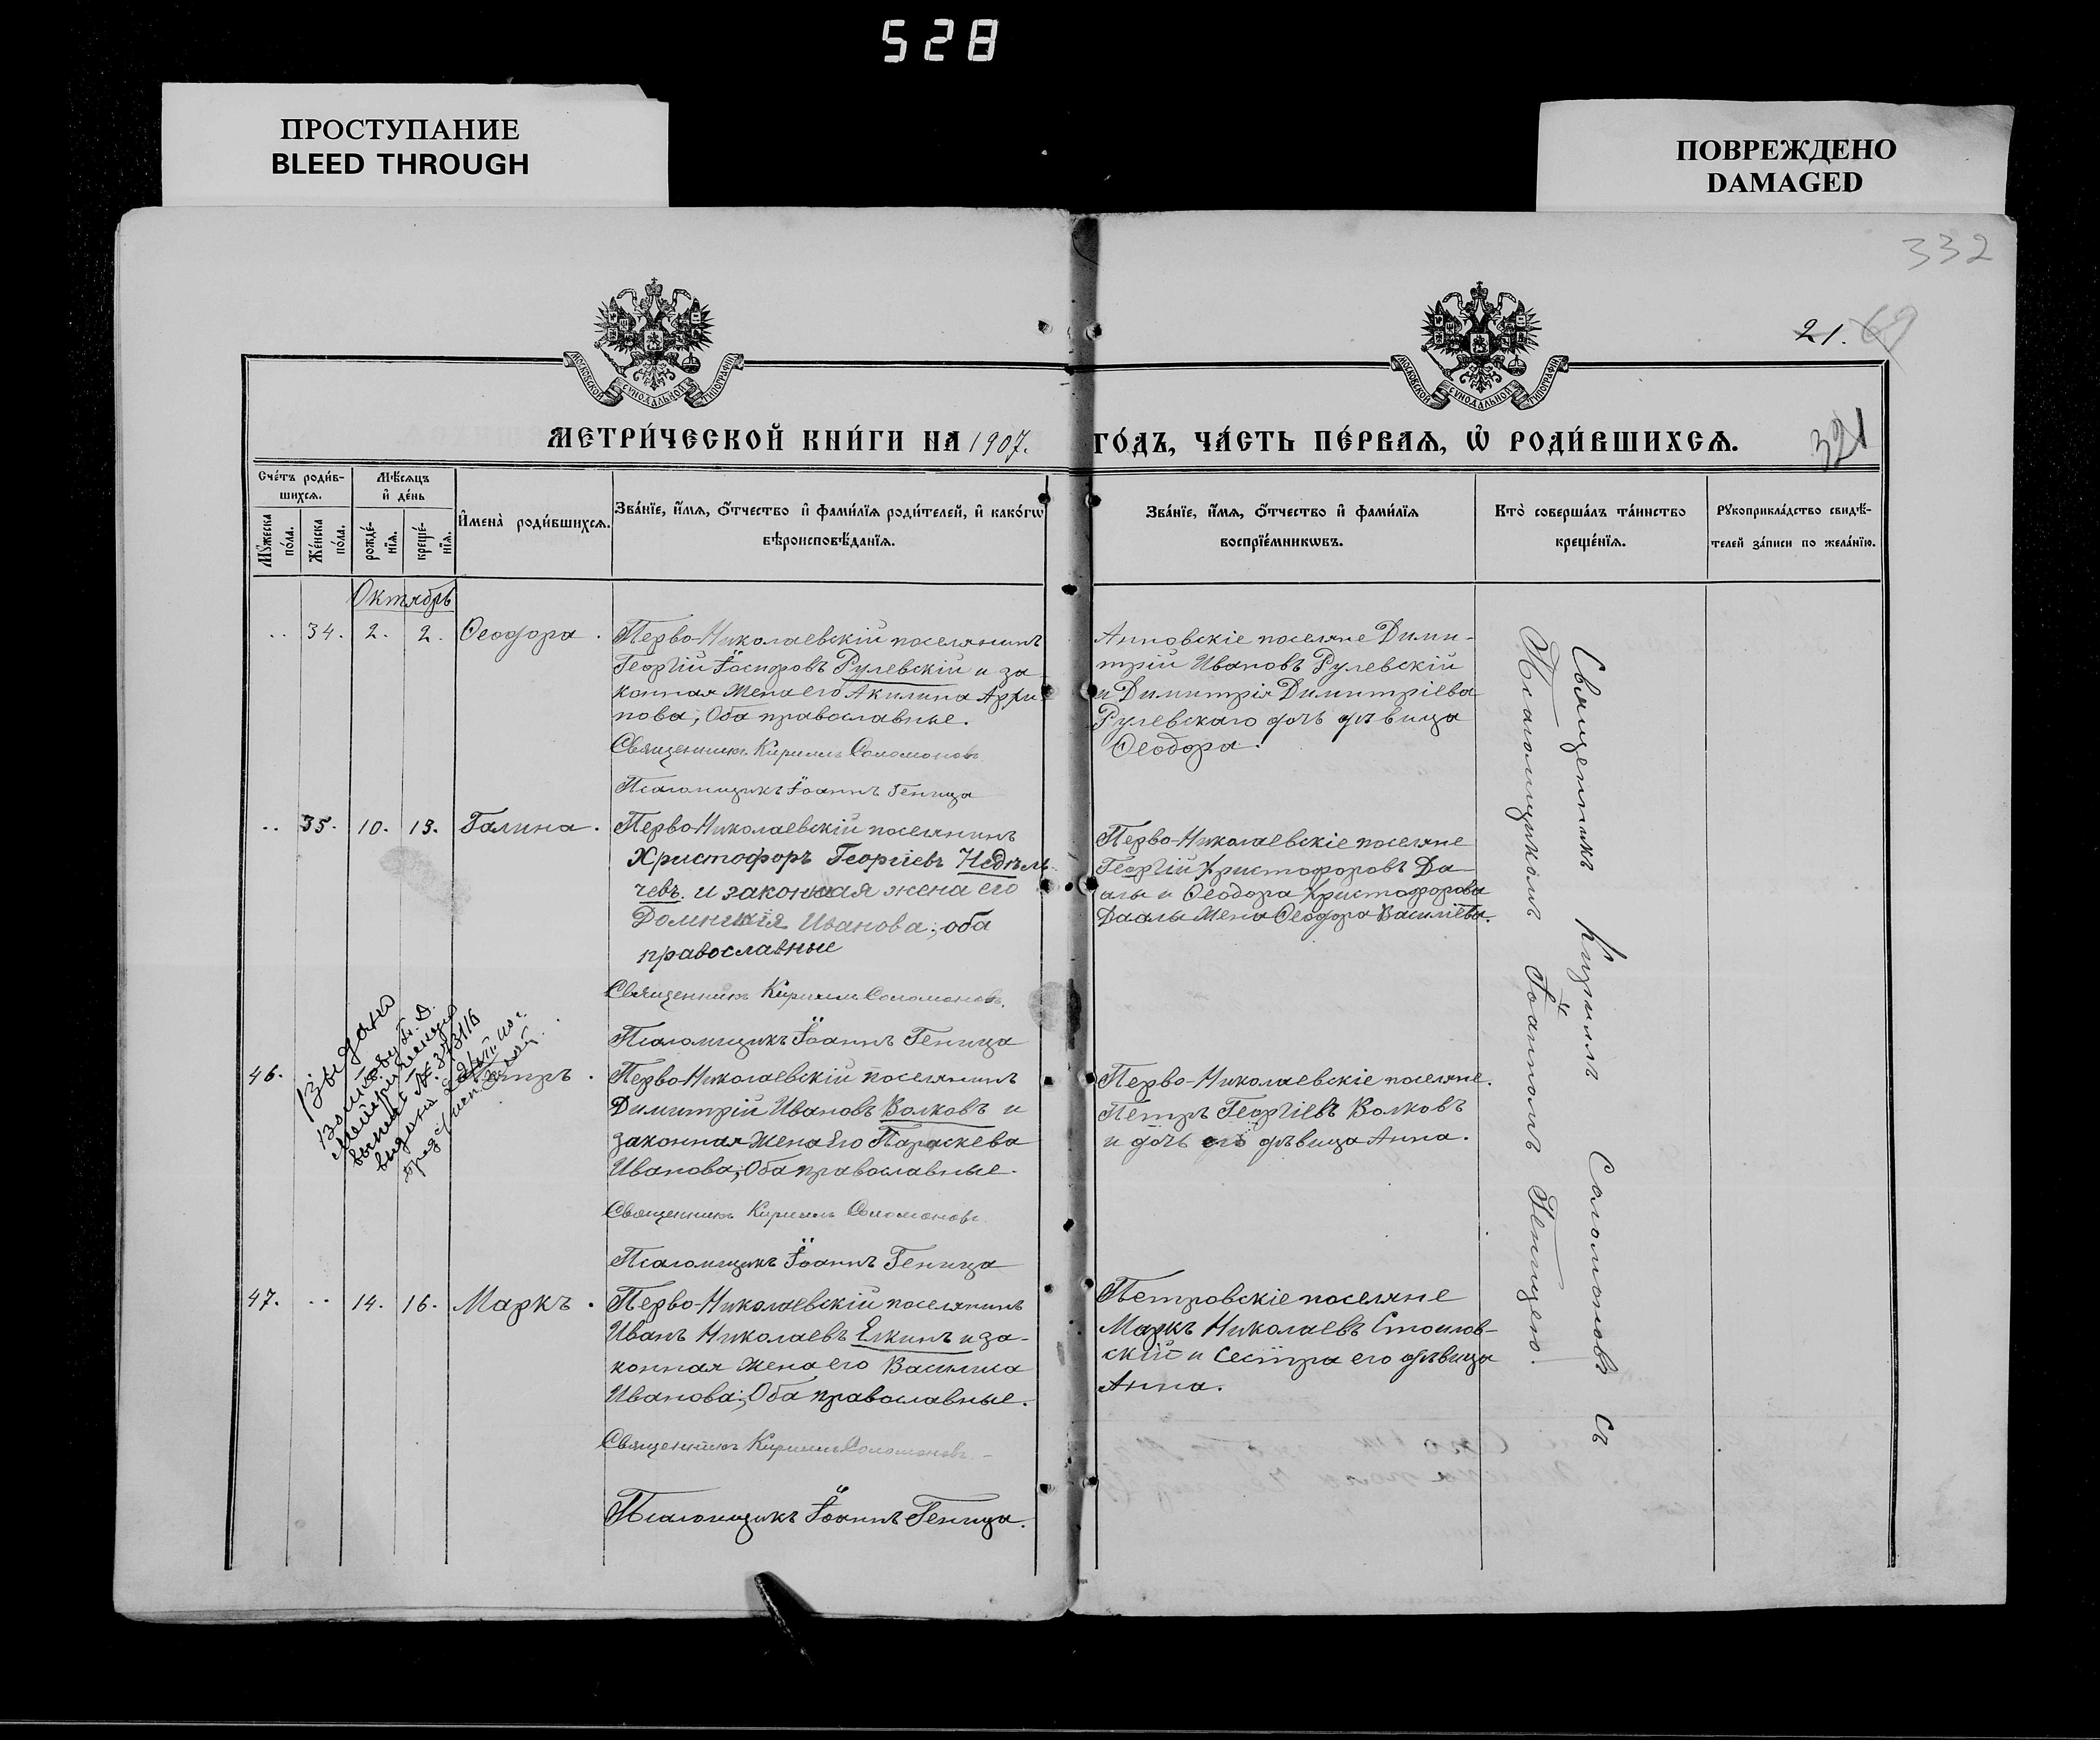 528
ПРОСТУПАНИЕ
BLEED THROUGH
ПОВРЕЖДЕНО
DAMAGED
332
21. 69
321
МОСКОВСКОЙ СУНОДАЛЬНОЙ ТИПОГРАФІИ
МОСКОВСКОЙ СУНОДАЛЬНОЙ ТИПОГРАФІИ
МЕТРИ́ЧЕСКОЙ КНИ́ГИ НА 1907. ГО́ДЪ, ЧА́СТЬ ПЕ́РВАЯ, Ѡ РОДИ́ВШИХСѦ.
Сче́тъ роди́в-
шихсѧ.
Мѣ́сѧцъ
и҆ де́нь
Мꙋ́жеска
по́ла.
Же́нска
по́ла.
рожде́-
нїѧ.
креще́-
нїѧ.
И҆мена̀ роди́вшихсѧ.
Зва́нїе, и҆́мѧ, ѻ҆́тчество и҆ фами́лїѧ роди́телей, и҆ како́гѡ
вѣроисповѣ́данїѧ.
Зва́нїе, и҆́мѧ, ѻ҆́тчество и҆ фами́лїѧ
воспрїе́мникѡвъ.
Кто̀ соверша́лъ та́инство
креще́нїѧ.
Рꙋкоприкла́дство свидѣ́-
телей за́писи по жела́нїю.
Октябрь
.. 34. 2. 2. Ѳеодора.
Перво-Николаевскій поселянинъ
Георгій Іосифовъ Рулевскій и за-
конная жена его Акилина Архи-
пова; Оба православные.
Священникъ Кириллъ Соломоновъ
Псаломщикъ Іоаннъ Геница
Анновскіе поселяне Дими-
трій Ивановъ Рулевскій
и Димитрія Димитріева
Рулевскаго дочь дѣвица
Ѳеодора.
.. 35. 10. 13. Галина.
Перво-Николаевскій поселянинъ
Христофоръ Георгіевъ Недѣль-
чевъ и законная жена его
Домникія Иванова; оба
православные
Священникъ Кириллъ Соломоновъ.
Псаломщикъ Іоаннъ Геница
Перво-Николаевскіе поселяне
Георгій Христофоровъ Да-
алы и Ѳеодора Христофорова
Даалы жена Ѳеодора Васильева.
Выдано
Волкову
46. Петръ.
Перво-Николаевскій поселянинъ
Димитрій Ивановъ Волковъ и
законная жена его Параскева
Иванова; Оба православные.
Священникъ Кириллъ Соломоновъ.
Псаломщикъ Іоаннъ Геница
Перво-Николаевскіе поселяне.
Петръ Георгіевъ Волковъ
и дочь его дѣвица Анна.
47. .. 14. 16. Маркъ.
Перво-Николаевскій поселянинъ
Иванъ Николаевъ Елкинъ и за-
конная жена его Василиса
Иванова; Оба православные.
Священникъ Кириллъ Соломоновъ.
Псаломщикъ Іоаннъ Геница.
Петровскіе поселяне
Маркъ Николаевъ Стоилов-
скій и сестра его дѣвица
Анна.
Священникъ Кириллъ Соломоновъ съ
Псаломщикомъ Іоанномъ Геницею.